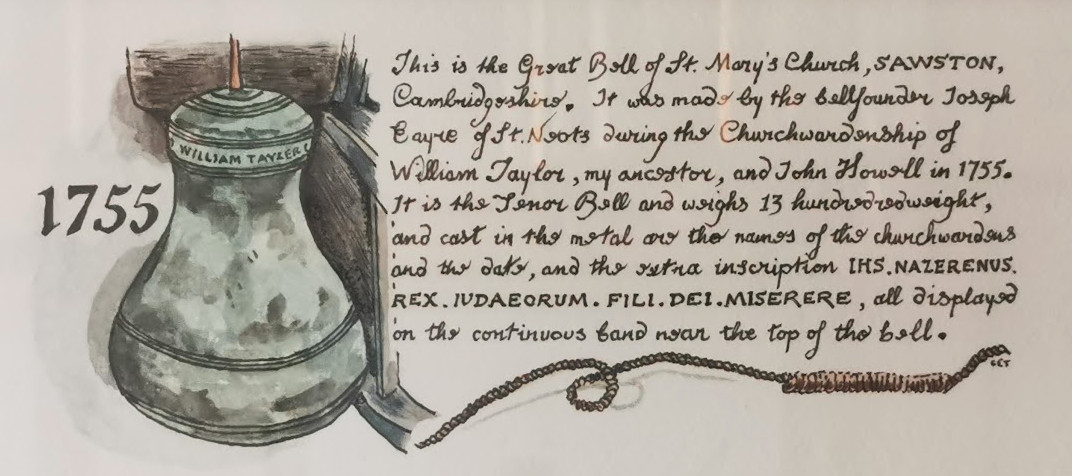 1755
WILLIAM TAYLER
This is the Great Bell of St. Mary's Church, SAWSTON,
Cambridgeshire. It was made by the bellfounder Joseph
Eayre of St. Neots during the Churchwardenship of
William Taylor, my ancestor, and John Howell in 1755.
It is the Tenor Bell and weighs 13 hundredredweight,
and cast in the metal are the names of the churchwardens
and the date, and the extra inscription IHS. NAZERENUS.
REX. IUDAEORUM. FILI. DEI. MISERERE, all displayed
on the continuous band near the top of the bell.